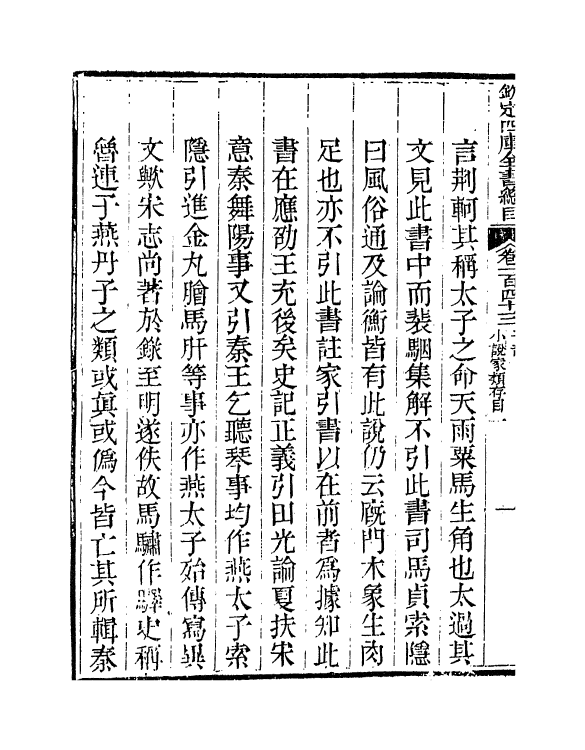 欽定四庫全書總目 卷一百四十三 子部 小說家類存目一 一
言荆軻其稱太子之命天雨粟馬生角也太過其
文見此書中而裴駰集解不引此書司馬貞索隱
曰風俗通及論衡皆有此說仍云廐門木象生肉
足也亦不引此書註家引書以在前者爲據知此
書在應劭王充後矣史記正義引田光論夏扶宋
意秦舞陽事又引秦王乞聽琴事均作燕太子索
隱引進金丸膾馬肝等事亦作燕太子殆傳寫異
文歟宋志尚著於錄至明遂佚故馬驌作驛史稱
魯連子燕丹子之類或眞或僞今皆亡其所輯秦